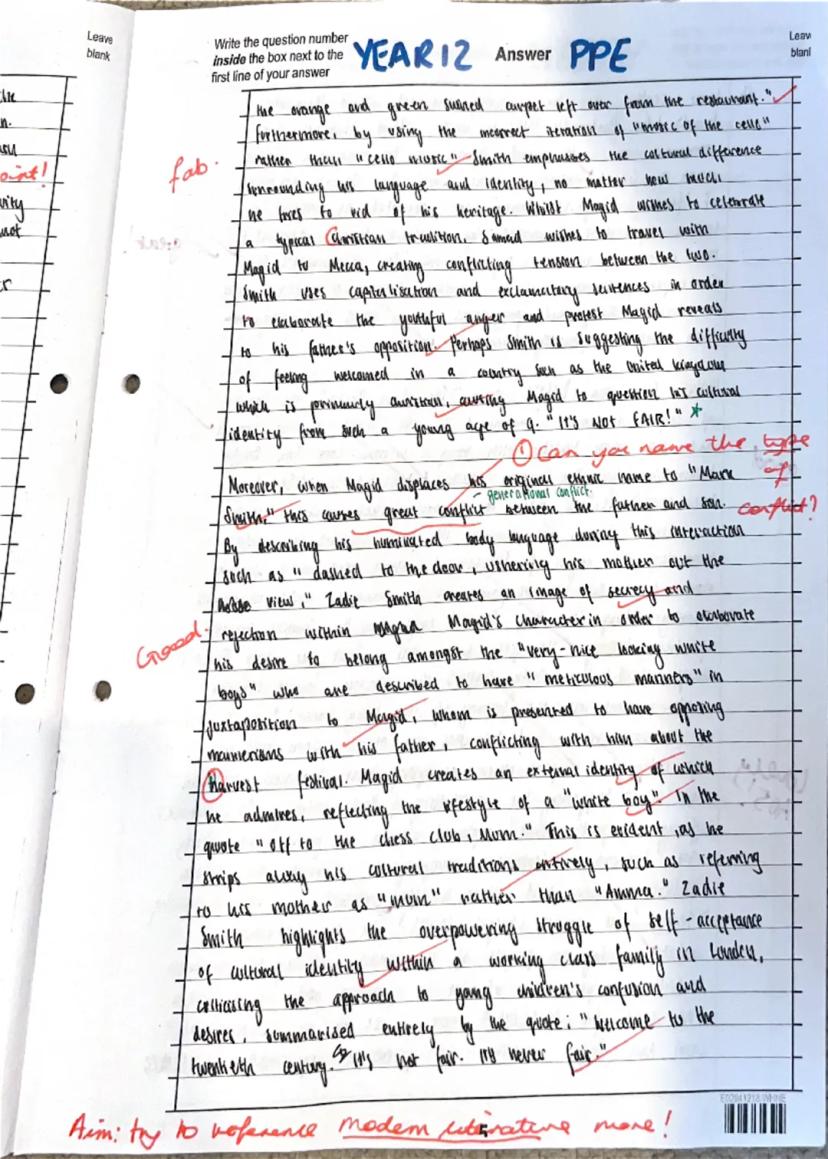 Leave
blank
Write the question number
inside the box next to the
first line of your answer
YEAR 12 Answer PPE
Leav
blank
the orange and green swirled carpet left over from the restaurant."
Furthermore, by using the incorrect iteration of "music of the cello"
rather than "cello music" Smith emphasises the cultural difference
fab.
surrounding his language and identity, no matter how much
he tries to rid of his heritage. Whilst Magid wishes to celebrate
a typical Christian tradition, Samad wishes to travel with
Magid to Mecca, creating conflicting tension between the two.
Smith uses capitalisation and exclamatory sentences in order
to elaborate the youthful anger and protest Magid reveals
to his father's opposition. Perhaps Smith is suggesting the difficulty
of feeling welcomed in a country such as the United Kingdom
which is primarily christian, causing Magid to question his cultural
identity from such a young age of 9. "IT'S NOT FAIR!" *
① Can you name the type
of
conflict?
Moreover, when Magid displaces his original ethnic name to "Mark
- generational conflict.
Smith," this causes great conflict between the father and son.
By describing his humiliated body language during this interaction
such as "dashed to the door, ushering his mother out the
view," Zadie Smith creates an image of secrecy and
Good.
rejection within Magid's character in order to elaborate
his desire to belong amongst the "very-nice looking white
boys" who are described to have "meticulous manners" in
juxtaposition to Magid, whom is presented to have opposing
mannerisms with his father, conflicting with him about the
Harvest festival. Magid creates an external identity of which
he admires, reflecting the lifestyle of a "white boy". In the
quote "off to the chess club, Mum." This is evident, as he
strips away his cultural traditions entirely, such as referring
to his mother as "mum" rather than "Amma." Zadie
Smith highlights the overpowering struggle of self-acceptance
of cultural identity within a working class family in London,
criticising the approach to young children's confusion and
desires, summarised entirely by the quote: "welcome to the
twentieth century. It's not fair. It's never fair."
Aim: try to reference modern literature more!